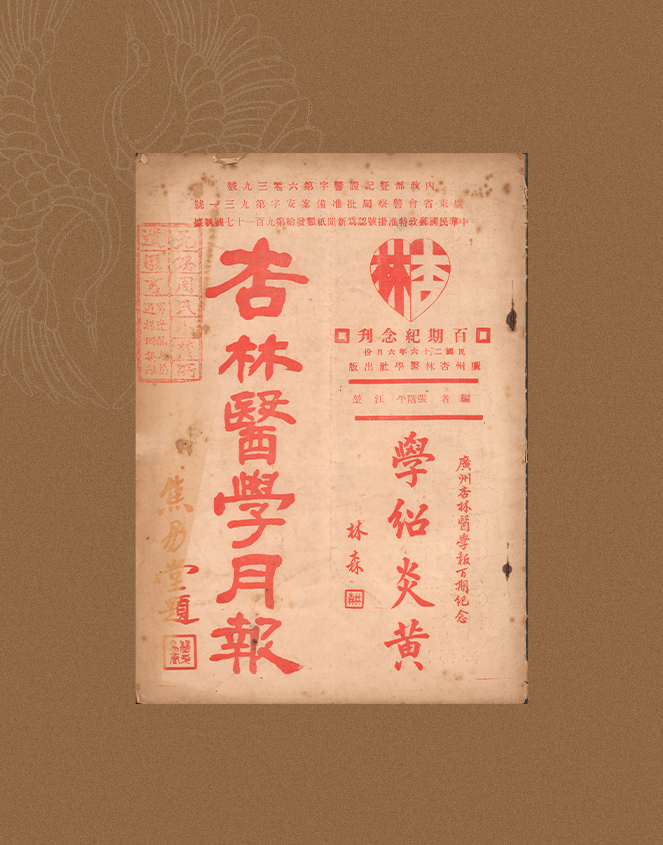 內政部登記證警字第六零三九號
廣東省會警察局批准備案安字第九三一號
中華民國郵政特准掛號認爲新聞紙類發給第九百一十七號執據
杏林
百期紀念刊
民國二十六年六月份
廣州杏林醫學社出版
編者 張階平 江堃
廣州杏林醫學報百期紀念
學紹炎黃
林森
杏林醫學月報
焦易堂題